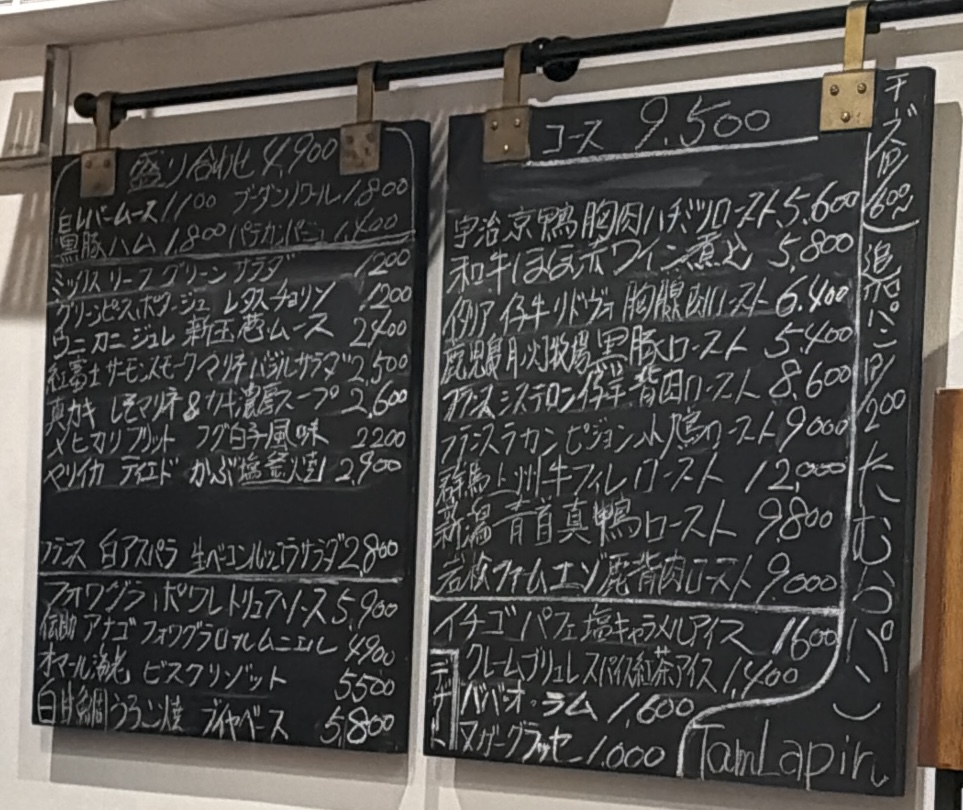 盛り合わせ 4,900
白レバームース 1100 ブーダンノワール 1800
黒豚ハム 1800 パテカンパーニュ 1,400
ミックスリーフ グリーン サラダ 1200
グリーンピース ポタージュ レタス チョリソ 1200
ウニ カニ ジュレ 新玉葱ムース 2400
紅富士サーモンスモーク マリネ バジルサラダ 2,500
真カキ しそマリネ & カキ濃厚スープ 2,600
メヒカリフリット フグ白子風味 2200
ヤリイカ ティエド かぶ塩釜焼 2,900
フランス 白アスパラ 生ベーコン サラダ 2,800
フォワグラ ポワレ トリュフソース 5,900
伝助 アナゴ フォワグラ ムニエル 4900
オマール海老 ビスクリゾット 5500
白甘鯛うろこ焼 ブイヤベース 5,800
コース 9,500
宇治京鴨胸肉ハチミツロースト 5,600
和牛ほほ赤ワイン煮込 5,800
イタリア仔牛リドヴォー胸腺肉ロースト 6,400
鹿児島 牧場黒豚ロースト 5,400
フランスシステロン仔羊背肉ロースト 8,600
フランスラカンピジョン小鳩ロースト 9000
群馬上州牛フィレロースト 12,000
新潟青首真鴨ロースト 9,800
若狭ファームエゾ鹿背肉ロースト 9,000
イチゴパフェ塩キャラメルアイス 1600
クレームブリュレ スパイス紅茶アイス 1,400
ババ・オ・ラム 1,600
ヌガーグラッセ 1,000
デザート
チーズ
追加パン
200
たむらパン
TamLapin